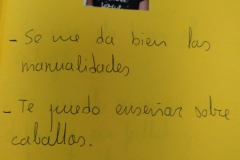 - Se me da bien las
manualidades
- Te puedo enseñar sobre
caballos.